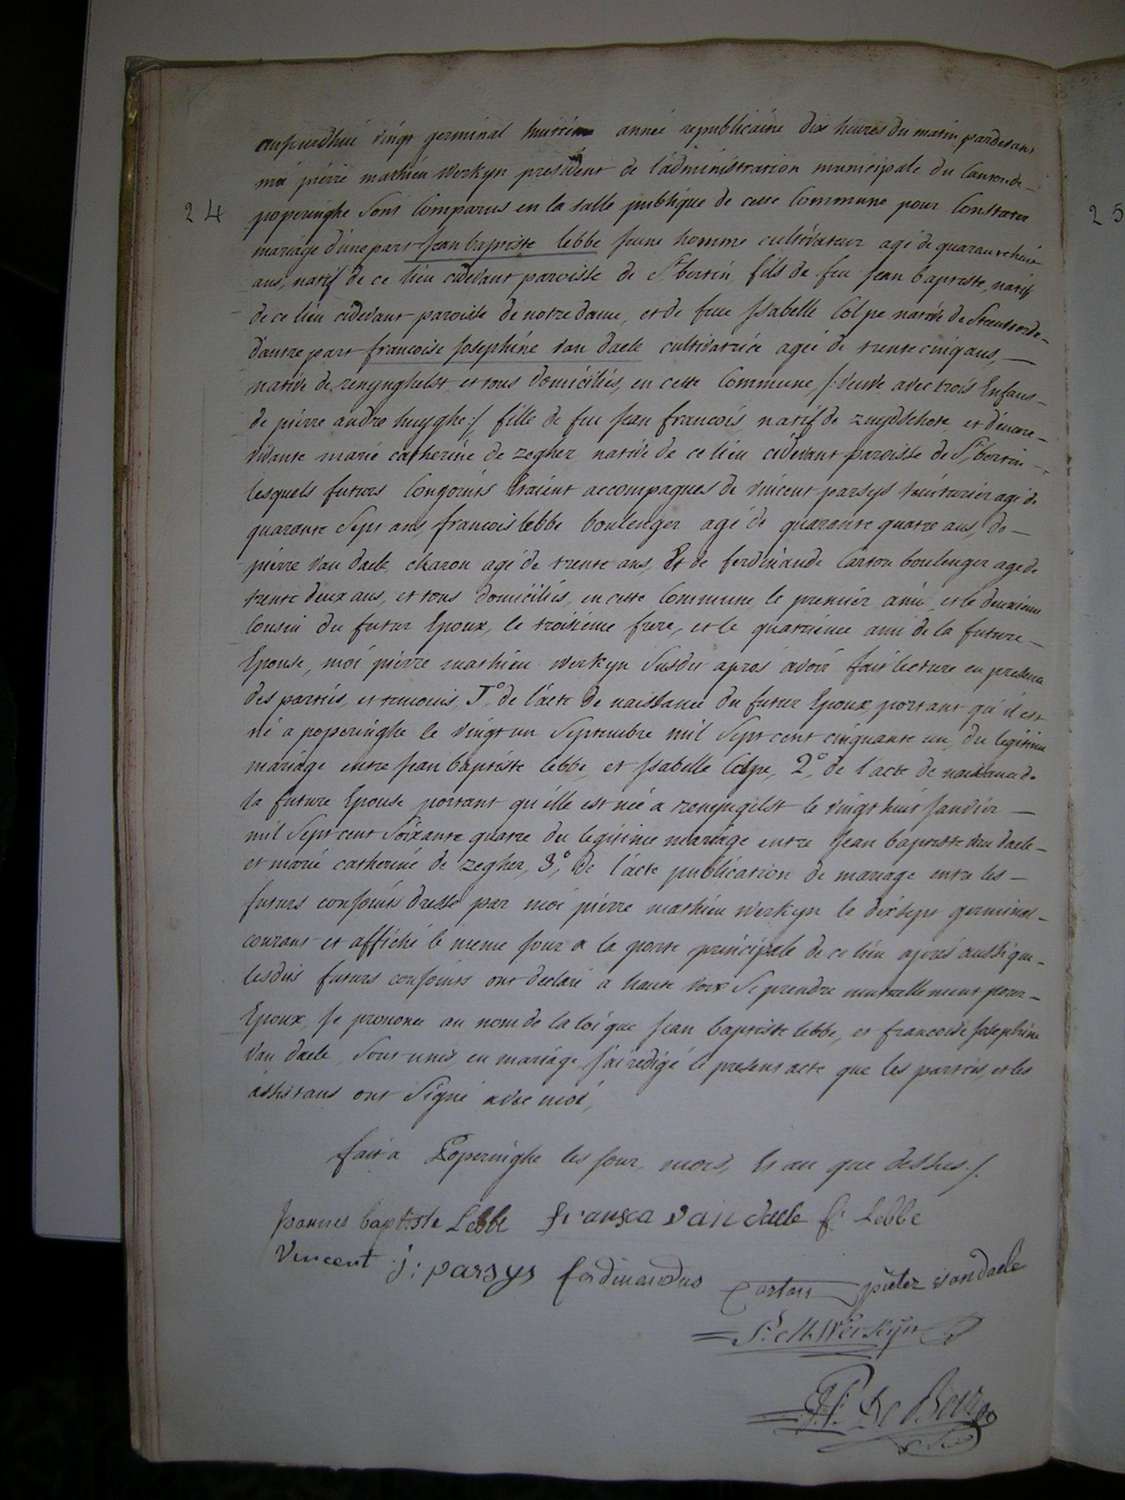 aujourdhui vingt germinal huitieme année republicaine dix heures du matin pardevant
moi pierre mathieu Werkyn president de l'administration municipale du Canton de
24 poperinghe Sont Comparus en la salle publique de cette Commune pour Constater
mariage d'une part Jean baptiste lebbe Jeune homme cultivateur agé de quarante huit
ans, natif de ce lieu cidevant paroisse de St bertin fils de feu Jean baptiste, natif
de ce lieu cidevant paroisse de notre dame, et de feue Isabelle Colpe native de
d'autre part francoise Josephine Van daele cultivatrice agée de trente cinq ans,
native de renynghelst et tous domiciliés, en cette Commune, /: veuve avec trois Enfans
de pierre andre huyghe :/ fille de feu Jean francois natif de zuydschote et d'encore
vivante marie catherine de zegher native de ce lieu cidevant paroisse de St bertin
lesquels futurs Conjoints etaient accompagnés de vincent parsys agé de
quarante Sept ans, francois lebbe boulenger agé de quarante quatre ans, de
pierre Van daele, charon agé de trente ans, Et de ferdinande Carton boulenger agé de
trente deux ans, et tous domiciliés, en cette Commune le premier ami, et le deuxieme
Cousin du futur Epoux, le troisieme frere, et le quatrieme ami de la future
Epouse, moi pierre mathieu Werkyn Susdit apres avoir fait lecture en presence
des parties, et temoins, 1° de l'acte de naissance du futur Epoux portant qu'il est
né a poperinghe le vingt un Septembre mil Sept cent cinquante un, du legitime
mariage entre Jean baptiste lebbe, et Isabelle Colpe, 2°, de l'acte de naissance de
la future Epouse portant qu'elle est née a renyngelst le vingt huit Janvier
mil Sept cent Soixante quatre du legitime mariage entre Jean baptiste Van daele
et marie catherine de zegher, 3°, de l'acte publication de mariage entre les
futurs conjoints dressé par moi pierre mathieu Werkyn le dix sept germinal
courant et affiché le meme jour a la porte principale de ce lieu apres aussi que
lesdits futurs conjoints ont declaré a haute voix Se prendre mutuellement pour
Epoux, Je prononce au nom de la loi que Jean baptiste lebbe, et francoise Josephine
Van daele Sont unis en mariage, J'ai redigé le present acte que les parties, et les
assistans ont Signé avec moi,
fait a Poperinghe les jour, mois, Et an que dessus ./.
Joannes baptiste Lebbe fransca van daele f: Lebbe
Vincent j: parsys ferdinandus Carton pieter vandaele
P: M. Werkyn
25